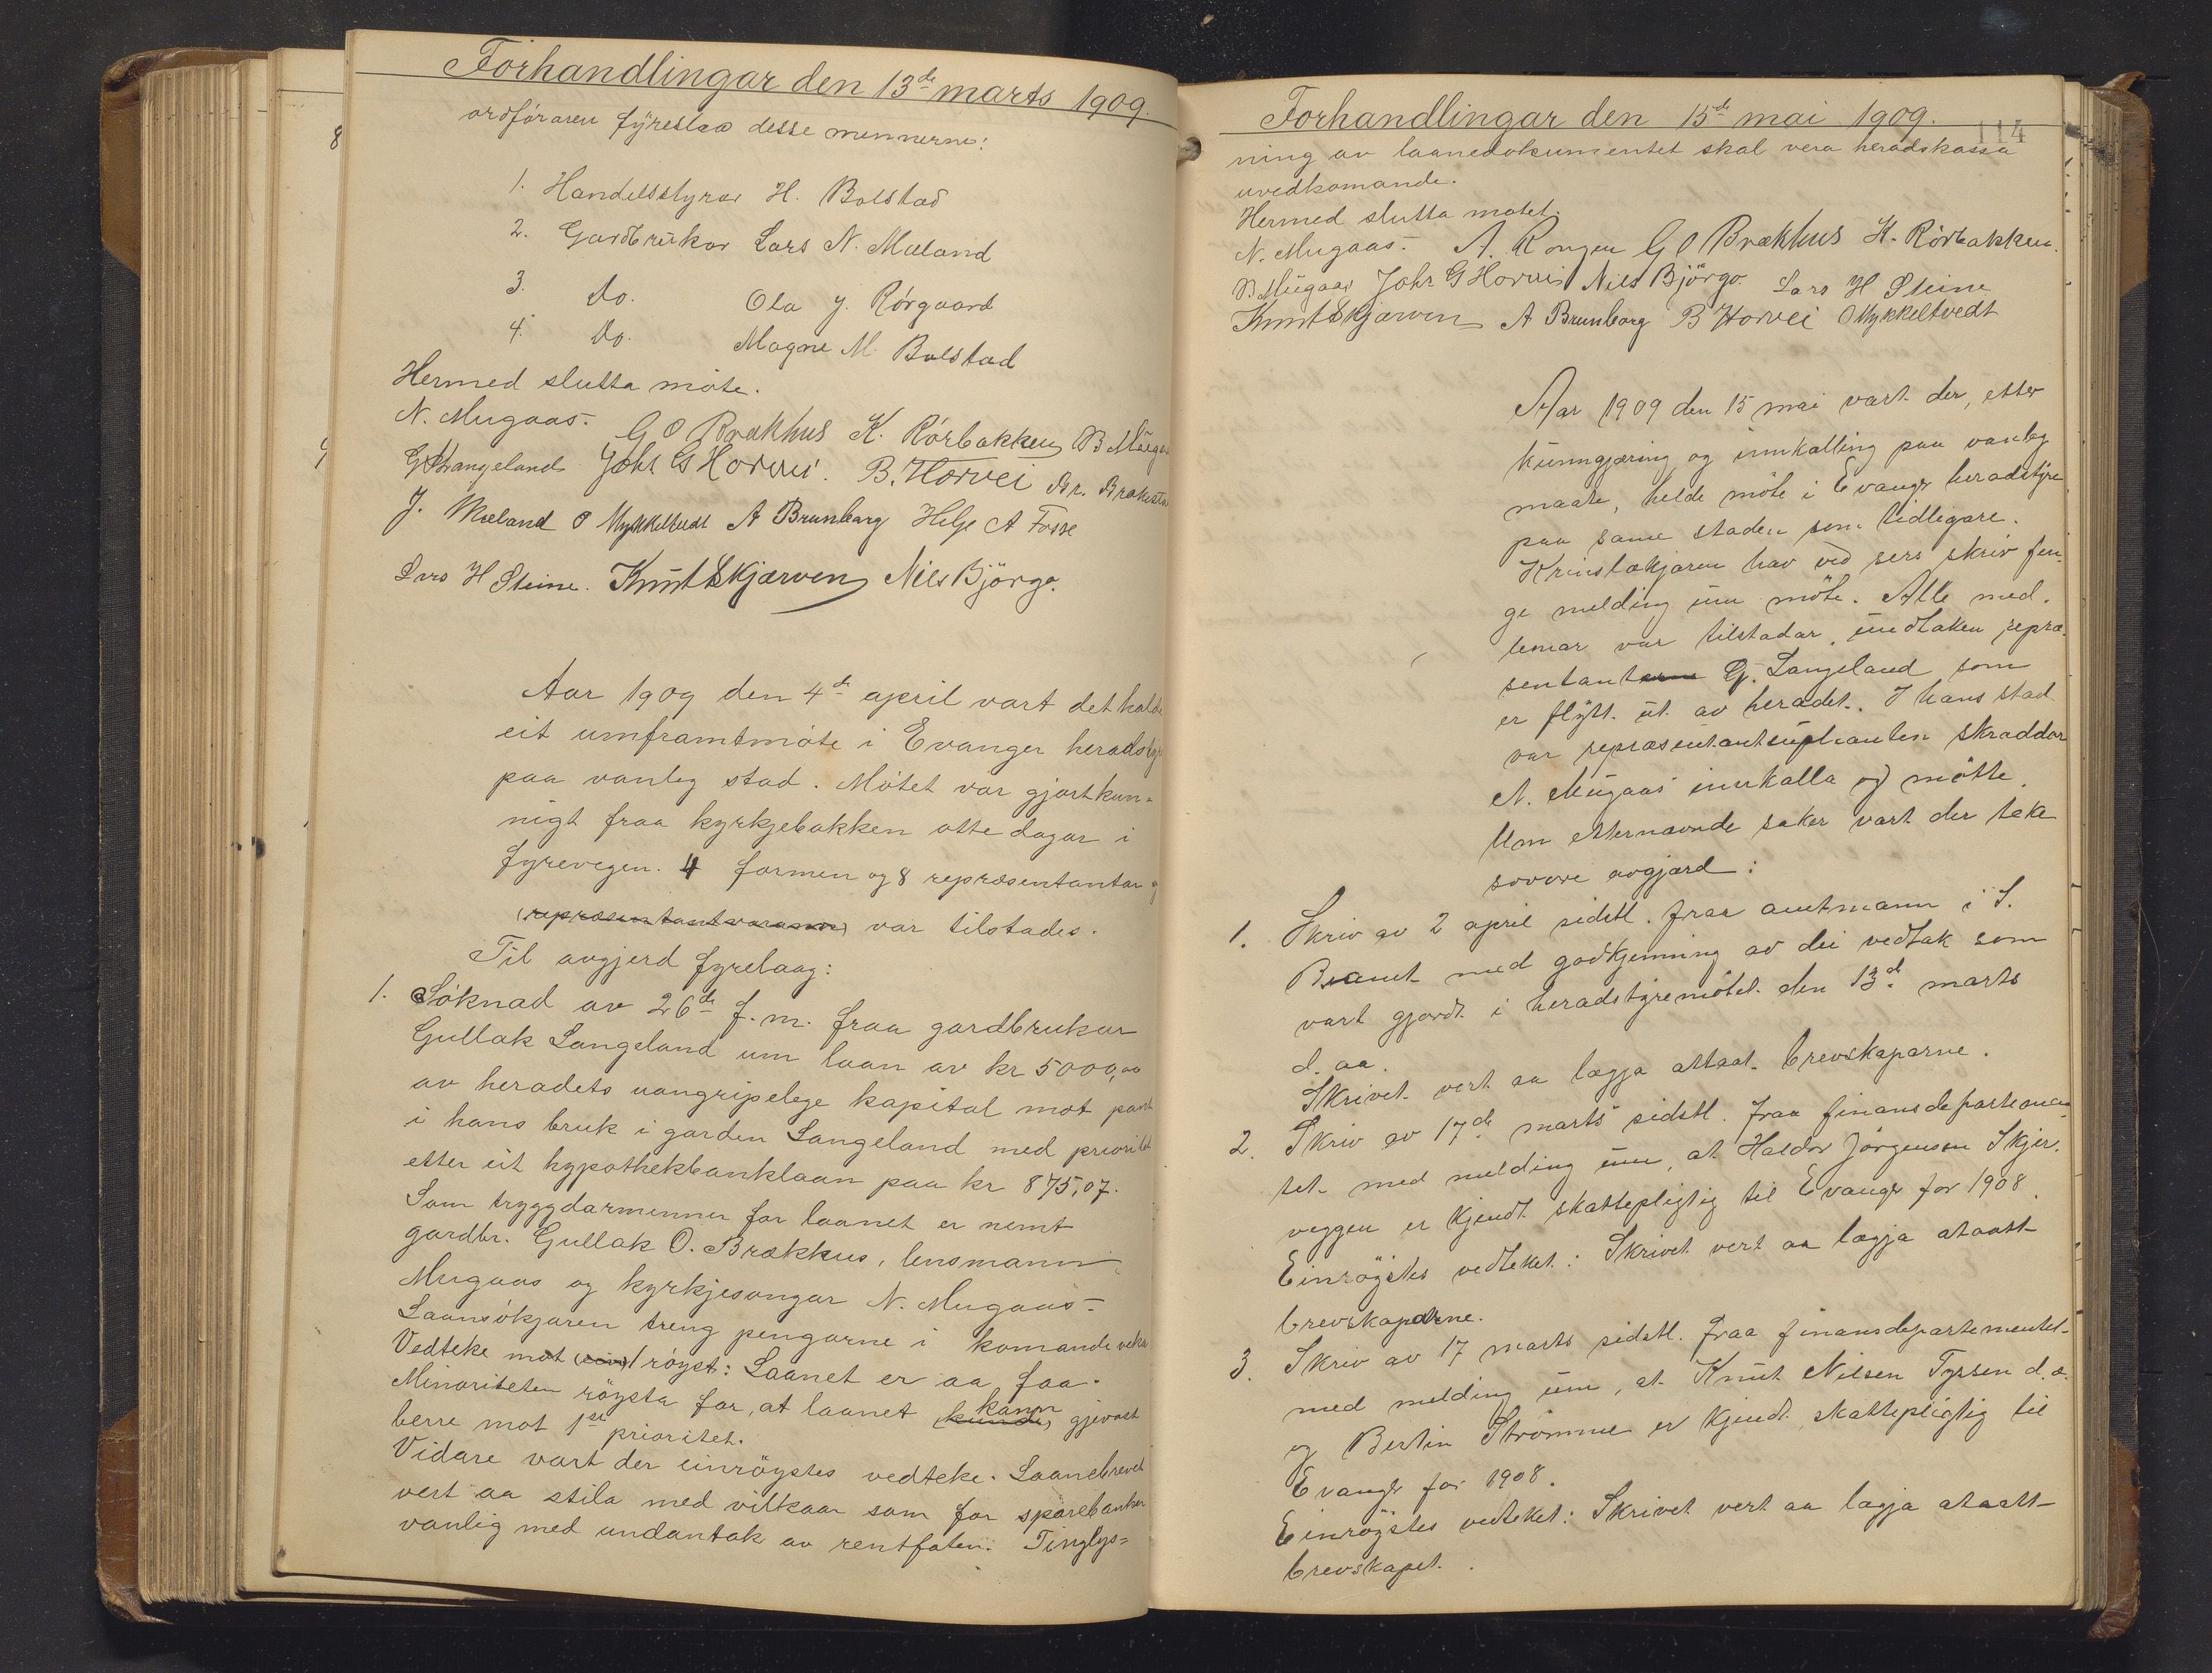 Forhandlingar den 13de marts 1909.
ordföraren fyreslaa desse mennerne:
1. Handelsstyrar H. Bolstad
2. Gardbrukar Lars N. Mæland
3. Do. Ola J. Rörgaard
4. Do. Magne M. Bolstad
Hermed slutta möte.
N. Mugaas. G O Brækhus K. Rörbakken B Mugaas
G Langeland Johs G Horvei. B. Horvei Br. Brakestad
J. Mæland O Mykkeltvedt A Brunborg Helje A Fosse
Lars H Steine. Knut Skjærven Nils Björgo.
Aar 1909 den 4de april vart det halde
eit umframtmöte i Evanger heradsty
paa vanleg stad. Mötet var gjort kun-
nigt fraa kyrkjebakken otte dagar i
fyrevegen. 4 formen og 8 repræsentantar
(repræsentantvaramn) var tilstades.
Til avgjerd fyrelaag:
1. Söknad av 26de f.m. fraa gardbrukar
Gullak Langeland um laan av kr 5000,00
av heradets uangripelege kapital mot pant
i hans bruk i garden Langeland med prioritet
etter eit hypothekbanklaan paa kr 875,07.
Som tryggdarmenner for laanet er nemt
gardbr. Gullak O. Brækkus, lensmann
Mugaas og kyrkjesongar N. Mugaas.
Laansökjaren treng pengarne i komande veka
Vedteke mot 1 röyst: Laanet er aa faa.
Minoriteten röysta for, at laanet (kunde) kann gjevast
berre mot 1ste prioritet.
Vidare vart der einröystes vedteke. Laanebrevet
vert aa stila med vilkaar som for sparebanker
vanlig med undantak av rentfoten. Tinglys-
114
Forhandlingar den 15de mai 1909.
ning av laanedokumentet skal vera heradskassa
uvedkomande.
Hermed slutta motet.
N. Mugaas. A. Rongen G O Brækhus K. Rörbakken.
B Mugaas Johs G Horvei Nils Björgo. Lars H Steine
Knut Skjærven A Brunborg B Horvei O Mykkeltvedt
Aar 1909 den 15 mai vart der, etter
kunngjæring og innkalling paa vanleg
maate, helde möte i Evanger heradstyre
paa same staden som tidlegare.
Krinslækjaren hav ved sers skriv fen-
ge melding um möte. Alle med-
lemar var tilstadar, undtaken repræ-
sentanterne G. Langeland som
er flytt ut av heradet. I hans stad
var repræsentantsuplranten skraddar
A. Mugaas innkalla og mötte.
Um etternævnde saker vart der teke
sovore avgjærd:
1. Skriv av 2 april sidstl. fraa amtmann i S.
Bramt med godkjenning av dei vedtak som
vart gjordt i heradstyremötet den 13de marts
d. aa.
Skrivet vert aa lægja attaat brevskaparne.
2. Skriv av 17de marts sidstl. fraa finansdepartemen-
tet med melding um, at Haldor Jörgensen Skjer-
veggen er kjendt skattepligtig til Evanger for 1908.
Einröystes vedteket: Skrivet vert aa lægja ataatt
brevskaparne.
3. Skriv av 17 marts sidstl. fraa finansdepartementet
med melding um, at Knut Nilsen Tyssen d.æ.
og Bertin Strömme er kjendt skattepligtig til
Evanger for 1908.
Einröystes vedteket: Skrivet vert aa lægja ataatt
brevskapet.